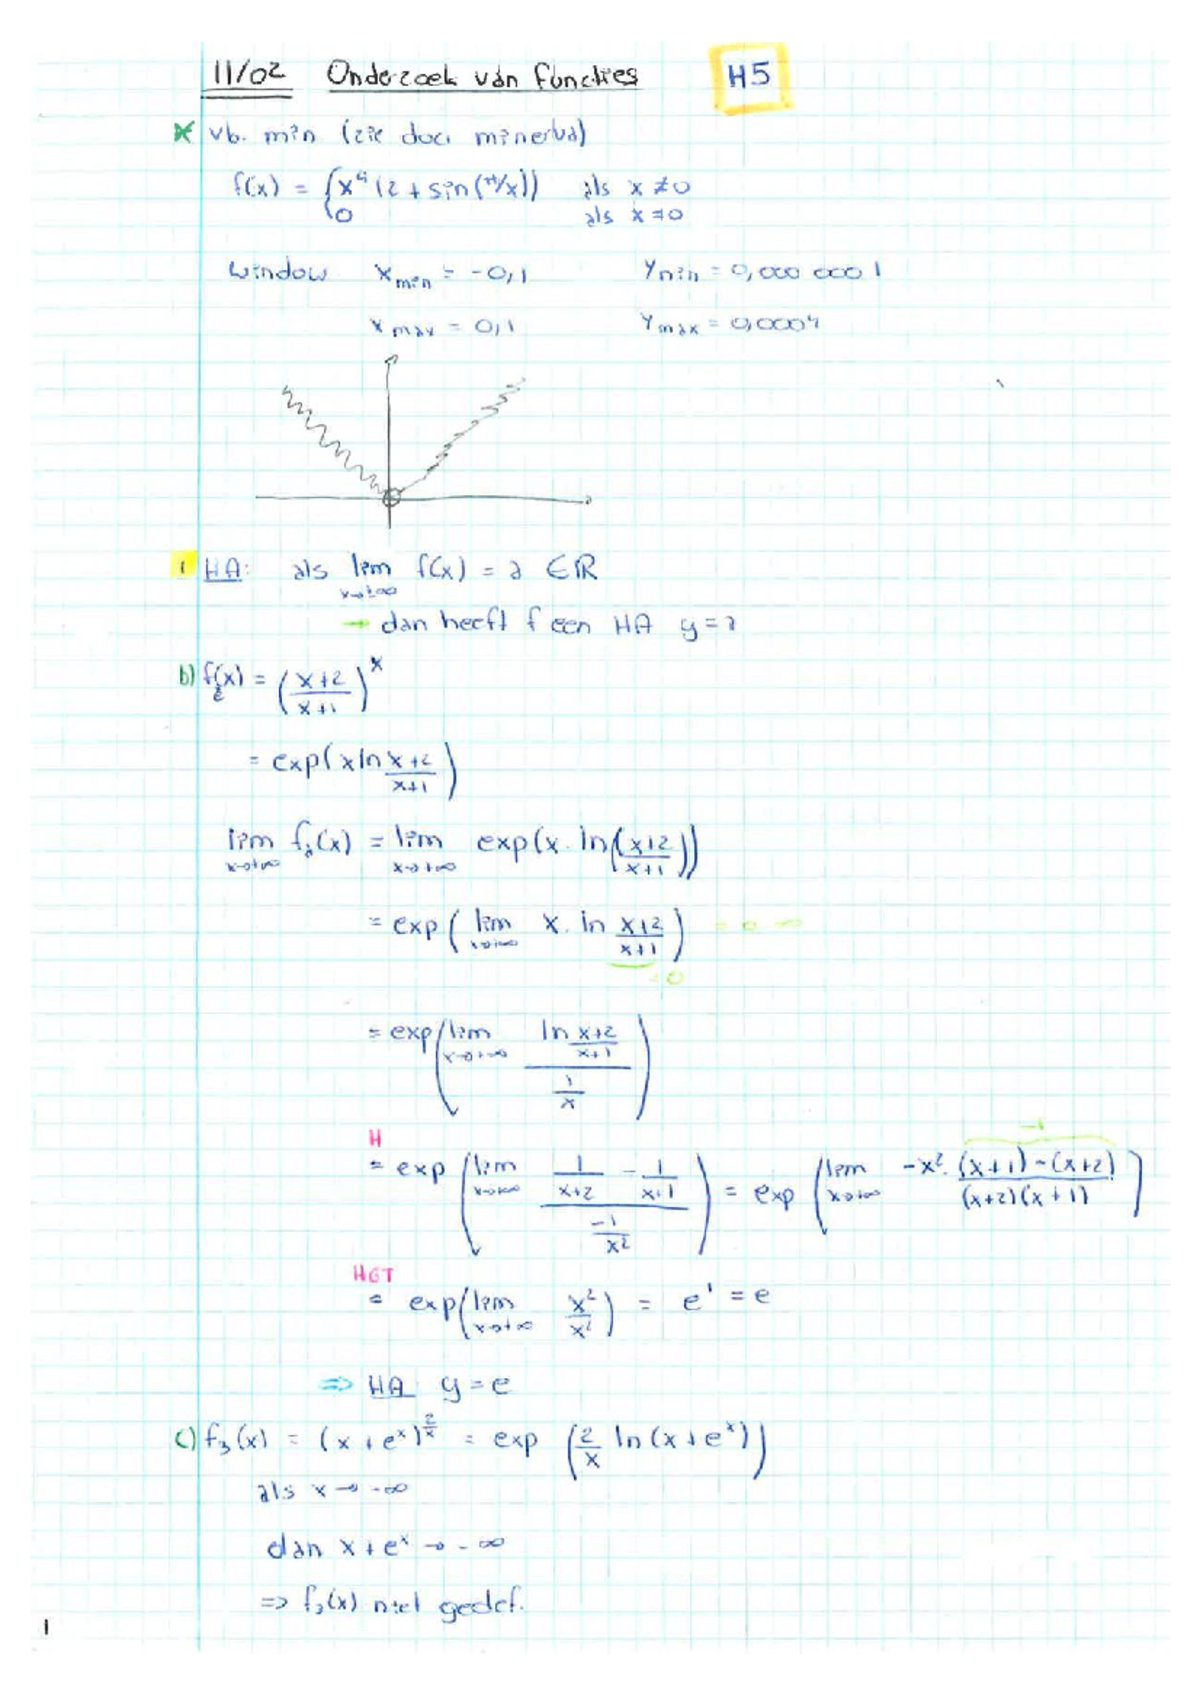 11/02 Onderzoek van functies H5
* vb. min (zie doc. minerva)
f(x) = { x⁴ (2 + sin(π/x)) als x ≠ 0
0 als x = 0
window x min = -0,1 y min = 0,000 000 1
x max = 0,1 y max = 0,0004
1 HA: als lim x→±∞ f(x) = a ∈ ℝ
→ dan heeft f een HA y = a
b) f₂(x) = ((x+2)/(x+1))^x
= exp(x ln (x+2)/(x+1))
lim x→+∞ f₂(x) = lim x→+∞ exp(x · ln((x+2)/(x+1)))
= exp( lim x→+∞ x · ln (x+2)/(x+1) ) = 0 · ∞
= 0
= exp( lim x→+∞ (ln (x+2)/(x+1)) / (1/x) )
H -1
= exp( lim x→+∞ (1/(x+2) - 1/(x+1)) / (-1/x²) ) = exp( lim x→+∞ -x² · ((x+1)-(x+2)) / ((x+2)(x+1)) )
HGT
= exp( lim x→+∞ x²/x² ) = e¹ = e
⇒ HA y = e
c) f₃(x) = (x + e^x)^(2/x) = exp (2/x ln (x + e^x))
als x → -∞
dan x + e^x → -∞
⇒ f₃(x) niet gedef.
1